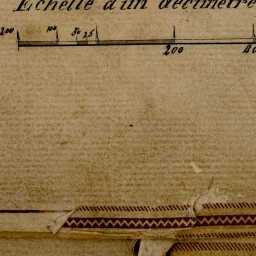 Echelle d'un décimètre
200 100 50 25 200